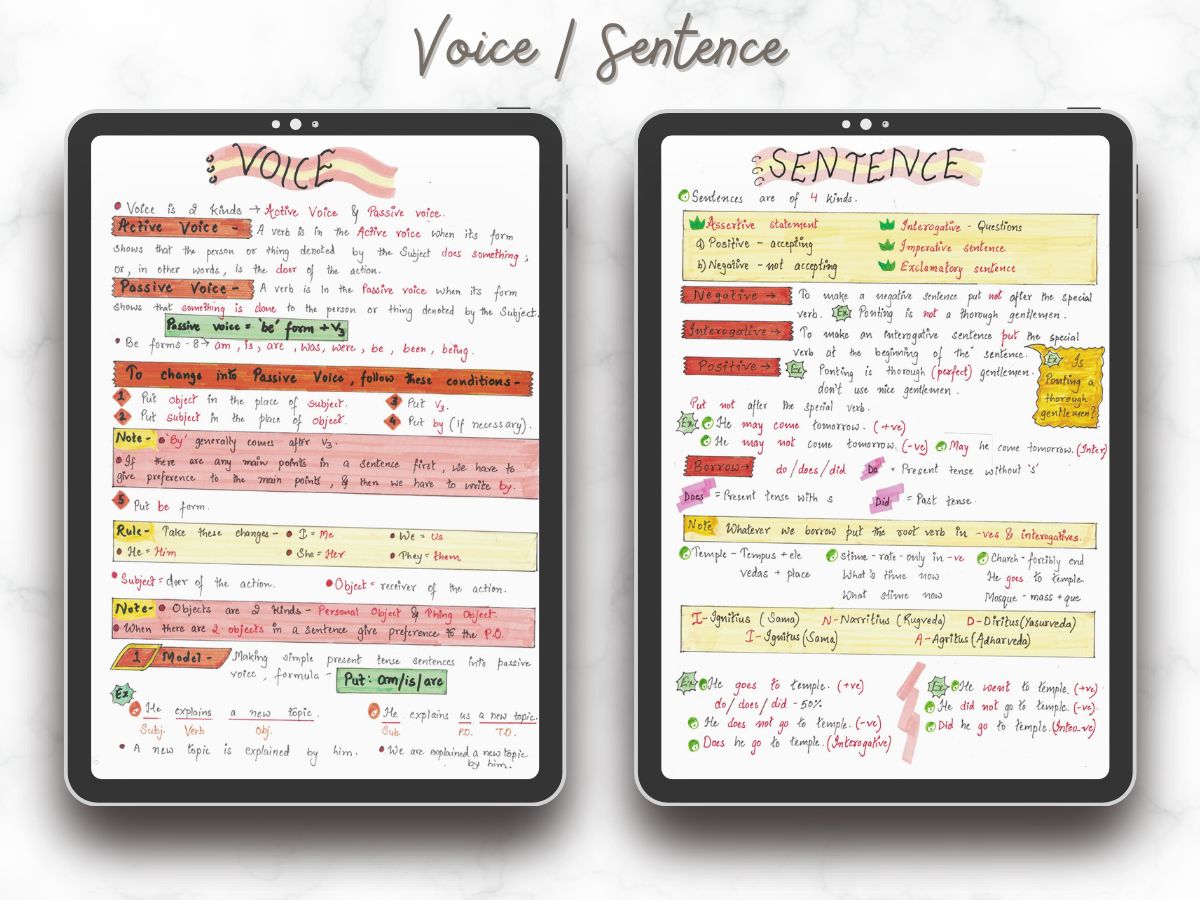 Voice / Sentence
VOICE
Voice is 2 kinds → Active Voice & Passive voice.
Active Voice - A verb is in the Active voice when its form
shows that the person or thing denoted by the Subject does something ;
or, in other words, is the doer of the action.
Passive Voice - A verb is in the Passive voice when its form
shows that something is done to the person or thing denoted by the Subject.
Passive voice = 'be' form + V3
Be forms - 8 → am, is, are, was, were, be, been, being.
To change into Passive Voice, follow these conditions-
1 Put object in the place of subject.
3 Put V3.
2 Put subject in the place of object.
4 Put by (if necessary).
Note- 'By' generally comes after V3.
If there are any main points in a sentence first, we have to
give preference to the main points, & then we have to write by.
5 Put be form.
Rule- Take these changes- I = Me We = Us
He = Him She = Her They = them
Subject = doer of the action. Object = receiver of the action.
Note- Objects are 2 kinds- Personal Object & Thing Object.
When there are 2 objects in a sentence give preference to the P.O.
1 Model- Making simple present tense sentences into passive
voice, formula - Put: am/is/are
Ex
He explains a new topic.
Subj. Verb Obj.
He explains us a new topic.
Sub. P.O. T.O.
A new topic is explained by him.
We are explained a new topic
by him.
SENTENCE
Sentences are of 4 kinds.
Assertive statement
Interogative - Questions
a) Positive - accepting
Imperative sentence
b) Negative - not accepting
Exclamatory sentence
Negative → To make a negative sentence put not after the special
verb. Ex Ponting is not a thorough gentlemen.
Interogative → To make an interogative sentence put the special
verb at the beginning of the sentence.
Ex Is
Ponting a
thorough
gentlemen?
Positive → Ex Ponting is thorough (perfect) gentlemen.
don't use nice gentlemen.
Put not after the special verb.
Ex He may come tomorrow. (+ve)
He may not come tomorrow. (-ve) May he come tomorrow. (Inter)
Borrow → do/does/did Do = Present tense without 's'
Does = Present tense with s Did = Past tense.
Note Whatever we borrow put the root verb in -ves & interogatives.
Temple - Tempus + ele
vedas + place
stime - rate - only in -ve
What's time now
What stime now
Church - forcibly end
He goes to temple.
Mosque - mass + que
I - Ignitius (Sama) N - Narritius (Rugveda) D - Diritus (Yasurveda)
I - Ignitus (Sama) A - Agritus (Adharveda)
Ex He goes to temple. (+ve)
do/does/did - 50%
He does not go to temple. (-ve)
Does he go to temple. (Interogative)
Ex He went to temple. (+ve)
He did not go to temple. (-ve)
Did he go to temple. (Inteo-ve)